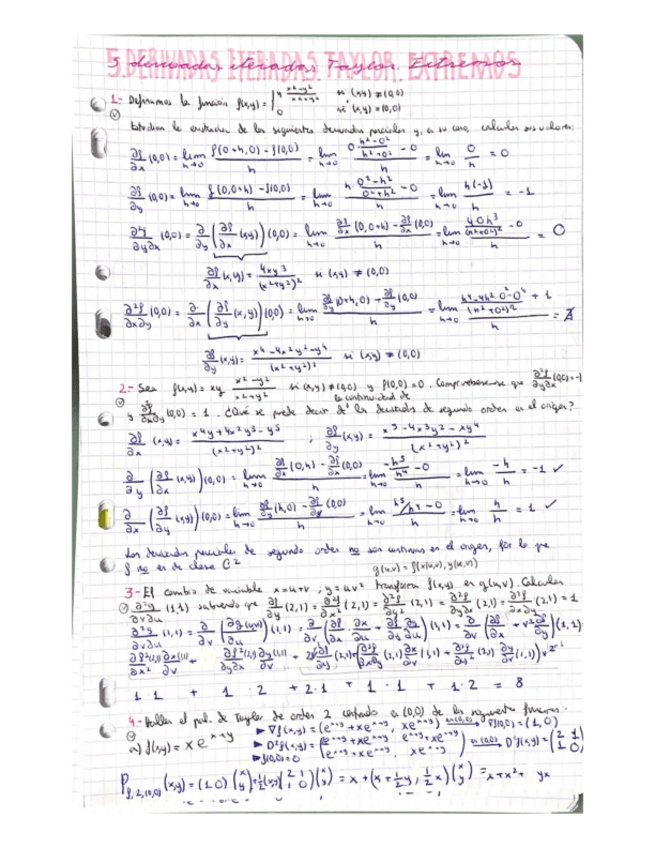 5. DERIVADAS ITERADAS. TAYLOR. EXTREMOS
5 derivadas iteradas. Taylor. Extremos
1.- Definimos la función f(x,y) = { y (x²-y²)/(x²+y²) si (x,y) ≠ (0,0)
0 si (x,y) = (0,0)
Estudiar la existencia de las siguientes derivadas parciales y, a su caso, calcular sus valores:
∂f/∂x (0,0) = lim h→0 (f(0+h,0) - f(0,0))/h = lim h→0 (0 (h²-0²)/(h²+0²) - 0)/h = lim h→0 0/h = 0
∂f/∂y (0,0) = lim h→0 (f(0,0+h) - f(0,0))/h = lim h→0 (h (0²-h²)/(0²+h²) - 0)/h = lim h→0 h(-1)/h = -1
∂²f/∂y∂x (0,0) = ∂/∂y (∂f/∂x (x,y)) (0,0) = lim h→0 (∂f/∂x (0,0+h) - ∂f/∂x (0,0))/h = lim h→0 (4·0h³/(h²+0²)² - 0)/h = 0
∂f/∂x (x,y) = 4xy³/(x²+y²)² si (x,y) ≠ (0,0)
∂²f/∂x∂y (0,0) = ∂/∂x (∂f/∂y (x,y)) (0,0) = lim h→0 (∂f/∂y (0+h,0) - ∂f/∂y (0,0))/h = lim h→0 ((h⁴-4h²0²-0⁴)/(h²+0²)² + 1)/h =
∂f/∂y (x,y) = (x⁴-4x²y²-y⁴)/(x²+y²)² si (x,y) ≠ (0,0)
2.- Sea f(x,y) = xy (x²-y²)/(x²+y²) si (x,y) ≠ (0,0) y f(0,0) = 0. Compruébese que ∂²f/∂y∂x (0,0) = -1
la continuidad de
y ∂²f/∂x∂y (0,0) = 1. ¿Qué se puede decir de las derivadas de segundo orden en el origen?
∂f/∂x (x,y) = (x⁴y+4x²y³-y⁵)/(x²+y²)² ; ∂f/∂y (x,y) = (x⁵-4x³y²-xy⁴)/(x²+y²)²
∂/∂y (∂f/∂x (x,y)) (0,0) = lim h→0 (∂f/∂x (0,h) - ∂f/∂x (0,0))/h = lim h→0 (-h⁵/h⁴ - 0)/h = lim h→0 -h/h = -1 ✓
∂/∂x (∂f/∂y (x,y)) (0,0) = lim h→0 (∂f/∂y (h,0) - ∂f/∂y (0,0))/h = lim h→0 (h⁵/h⁴ - 0)/h = lim h→0 h/h = 1 ✓
Las derivadas parciales de segundo orden no son continuas en el origen, por lo que
f no es de clase C²
g(u,v) = f(x(u,v), y(u,v))
3.- El cambio de variable x = u+v ; y = uv² transforma f(x,y) en g(u,v). Calcular
∂²g/∂v∂u (1,1) sabiendo que ∂f/∂y (2,1) = ∂²f/∂x² (2,1) = ∂²f/∂y² (2,1) = ∂²f/∂y∂x (2,1) = ∂²f/∂x∂y (2,1) = 1
∂²g/∂v∂u (1,1) = ∂/∂v (∂g(u,v)/∂u) (1,1) = ∂/∂v (∂f/∂x · ∂x/∂u + ∂f/∂y · ∂y/∂u) (1,1) = ∂/∂v (∂f/∂x + v² ∂f/∂y) (1,1) =
∂f²(2,1)/∂x² ∂x(1,1)/∂v + ∂f²(2,1)/∂y∂x ∂y(1,1)/∂v + 2v ∂f/∂y (2,1) + (∂²f/∂x∂y (2,1) ∂x/∂v (1,1) + ∂²f/∂y² (2,1) ∂y/∂v (1,1)) v²
1·1 + 1·2 + 2·1 + 1·1 + 1·2 = 8
4.- Hallar el pol. de Taylor de orden 2 centrado a (0,0) de las siguientes funciones.
a) f(x,y) = x e^(x+y)
► ∇f(x,y) = (e^(x+y) + xe^(x+y), xe^(x+y)) en (0,0) ∇f(0,0) = (1,0)
► D²f(x,y) = (e^(x+y) + xe^(x+y) e^(x+y) + xe^(x+y) / e^(x+y) + xe^(x+y) xe^(x+y)) en (0,0) D²f(x,y) = (2 1 / 1 0)
► f(0,0) = 0
P f,2,(0,0) (x,y) = (1 0) (x / y) + ½ (x,y) (2 1 / 1 0) (x / y) = x + (x + ½y, ½x) (x / y) = x + x² + yx